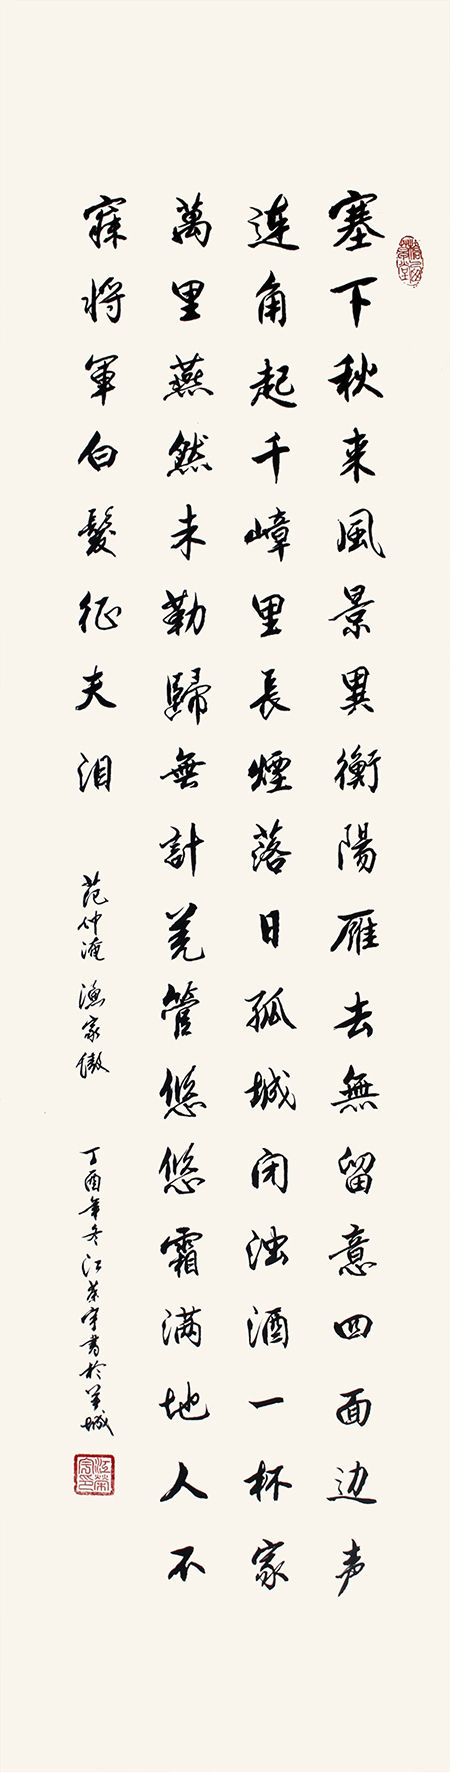 塞下秋来風景異衡陽雁去無留意四面边声
连角起千嶂里長煙落日孤城闭浊酒一杯家
萬里燕然未勒歸無計羌管悠悠霜满地人不
寐将軍白髮征夫泪
范仲淹 渔家傲
丁酉年冬江荣宇書於羊城